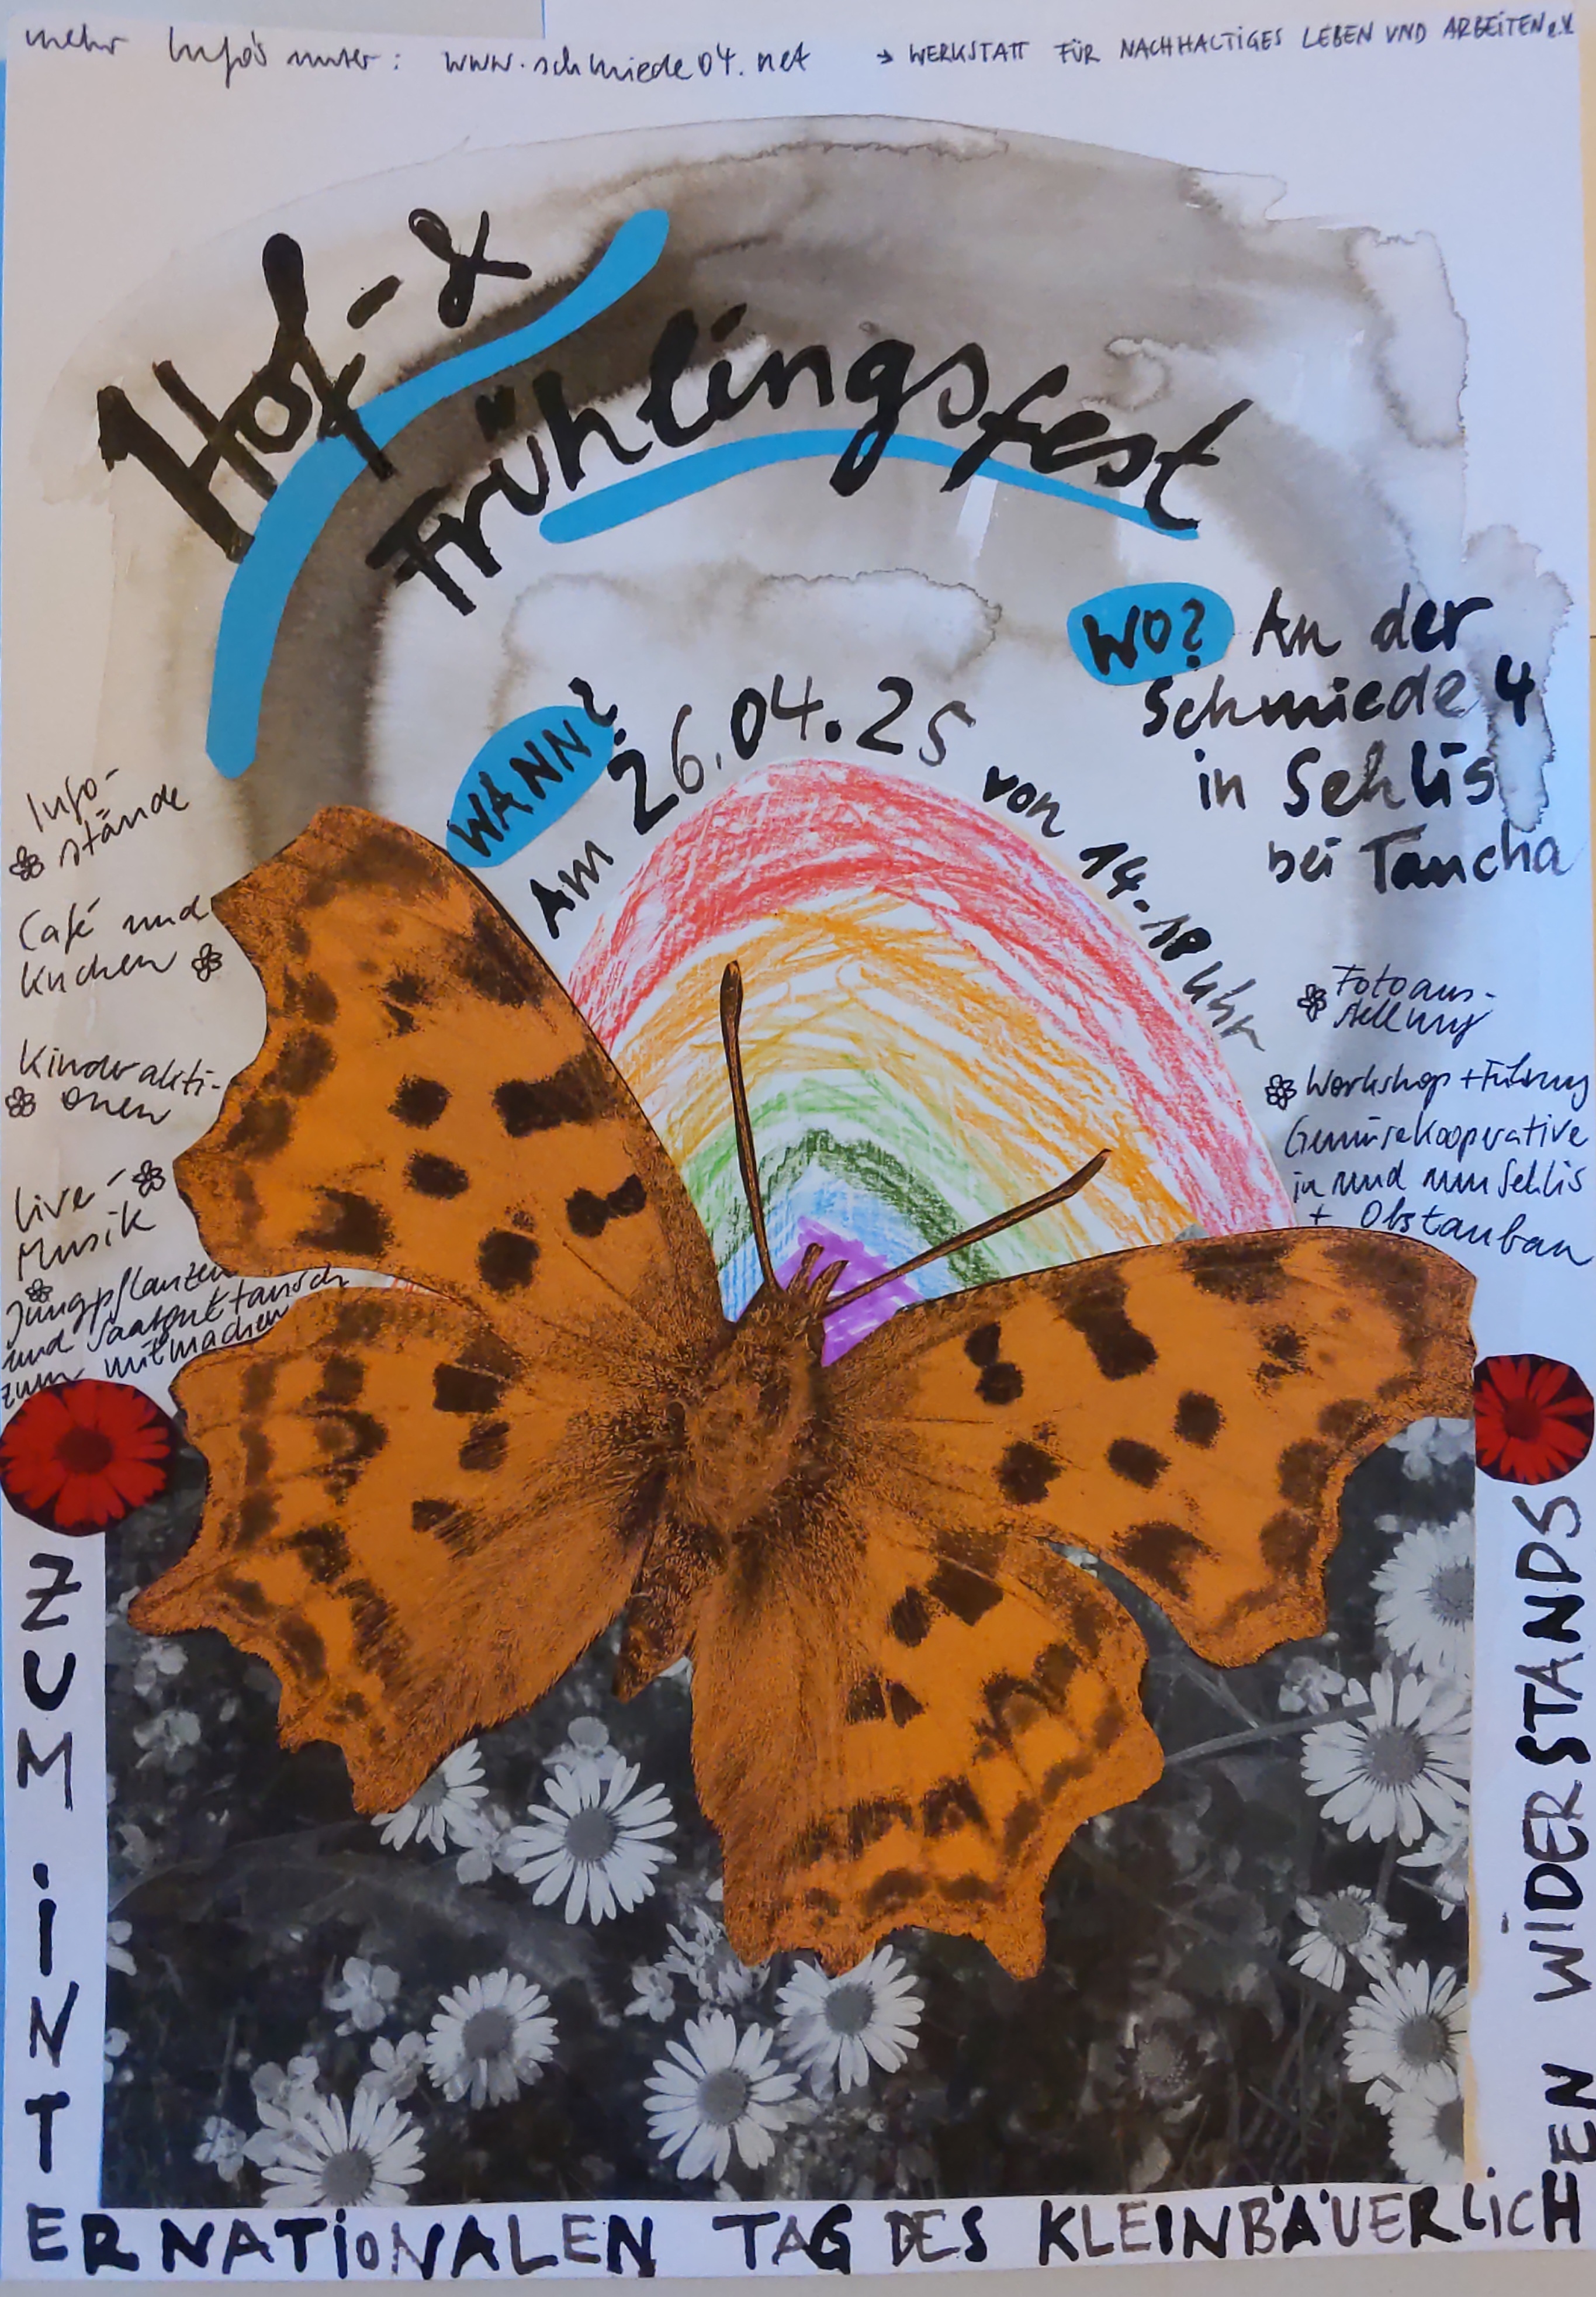 mehr Info's unter: www.schmiede04.net → WERKSTATT FÜR NACHHALTIGES LEBEN UND ARBEITEN e.V.
Hof- &
Frühlingsfest
WO? An der
Schmiede 4
in Sehlis
bei Taucha
WANN?
Am 26.04.25 von 14-18 Uhr
Info-
stände
Café und
Kuchen
Kinderakti-
onen
Live-
Musik
Jungpflanzen
und Saatguttausch
zum mitmachen
Fotoaus-
stellung
Workshop + Führung
Gemüsekooperative
in und um Sehlis
+ Obstanbau
ZUM INTERNATIONALEN TAG DES KLEINBÄUERLICHEN WIDERSTANDS